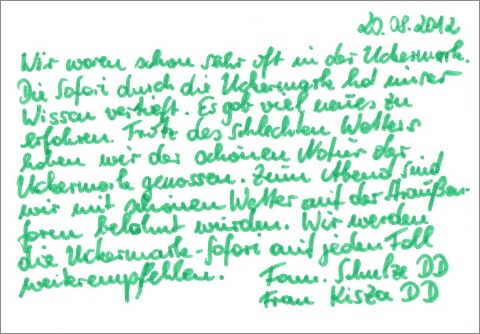 20.08.2012
Wir waren schon sehr oft in der Uckermark.
Die Safari durch die Uckermark hat unser
Wissen vertieft. Es gab viel neues zu
erfahren. Trotz des schlechten Wetters
haben wir der schönen Natur der
Uckermark genossen. Zum Abend sind
wir mit schönen Wetter auf der Straußen-
farm belohnt wurden. Wir werden
die Uckermark-Safari auf jeden Fall
weiterempfehlen. Fam. Schulze DD
Frau Kisza DD